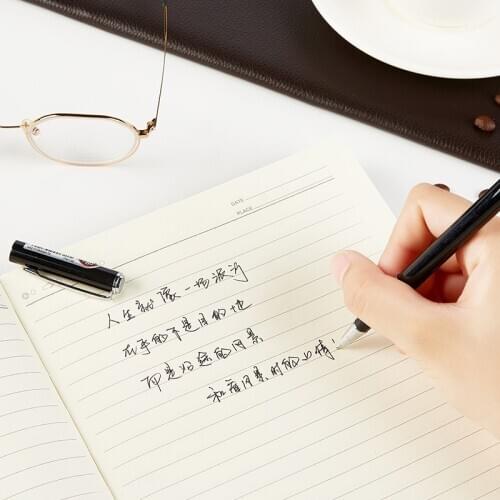 DATE
PLACE
人生就像一场旅行
在乎的不是目的地
而是沿途的风景
和看风景时的心情!